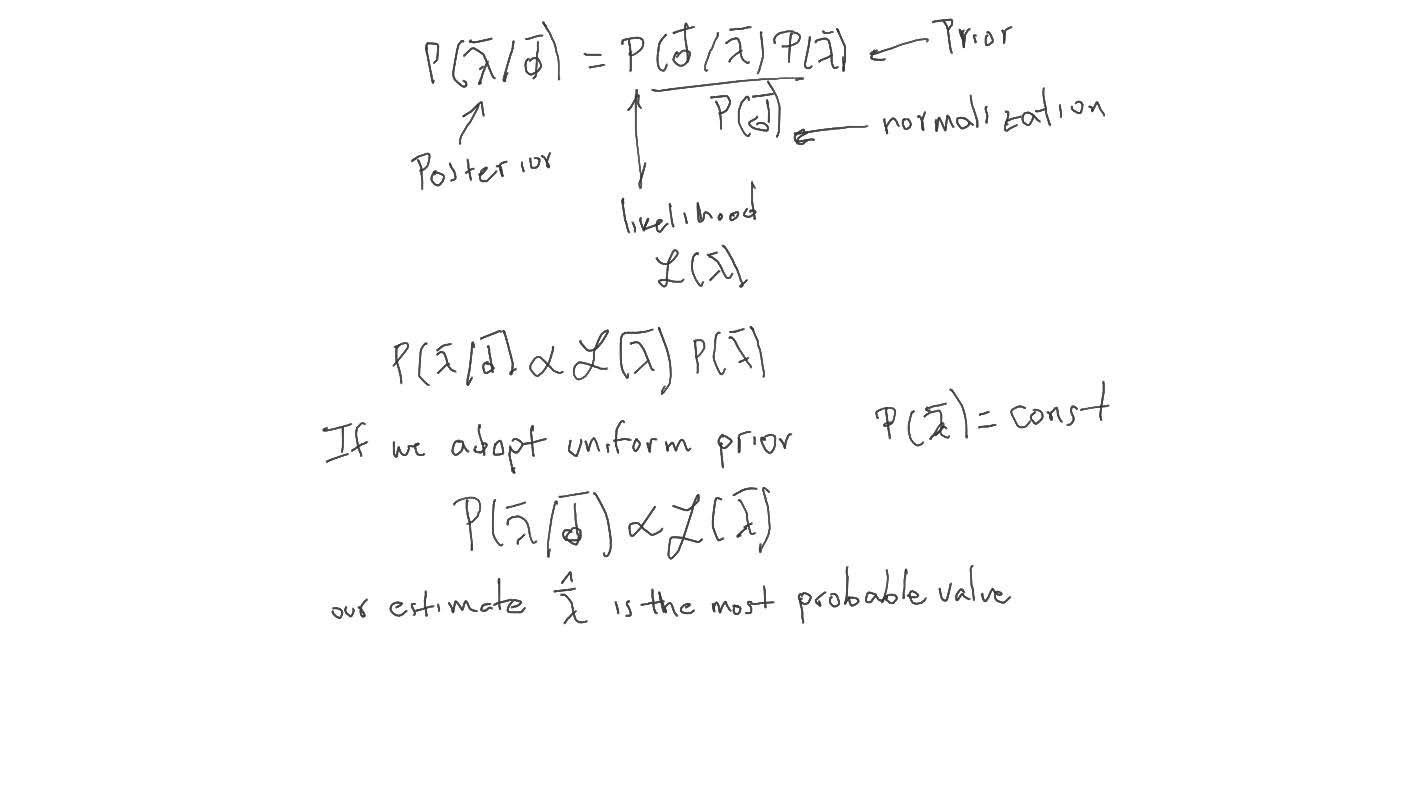 P(λ̄/d̄) = P(d̄/λ̄) P(λ̄) ← Prior
P(d̄) ← normalization
Posterior
likelihood
ℒ(λ̄)
P(λ̄/d̄) ∝ ℒ(λ̄) P(λ̄)
If we adopt uniform prior P(λ̄) = const
P(λ̄/d̄) ∝ ℒ(λ̄)
our estimate λ̄̂ is the most probable value